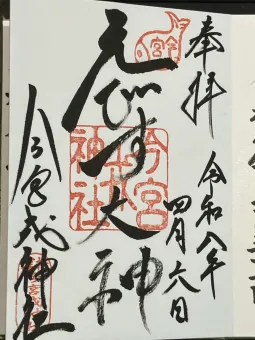 奉拝
令和八年
四月六日
えびす大神
今宮戎神社
今宮戎神社